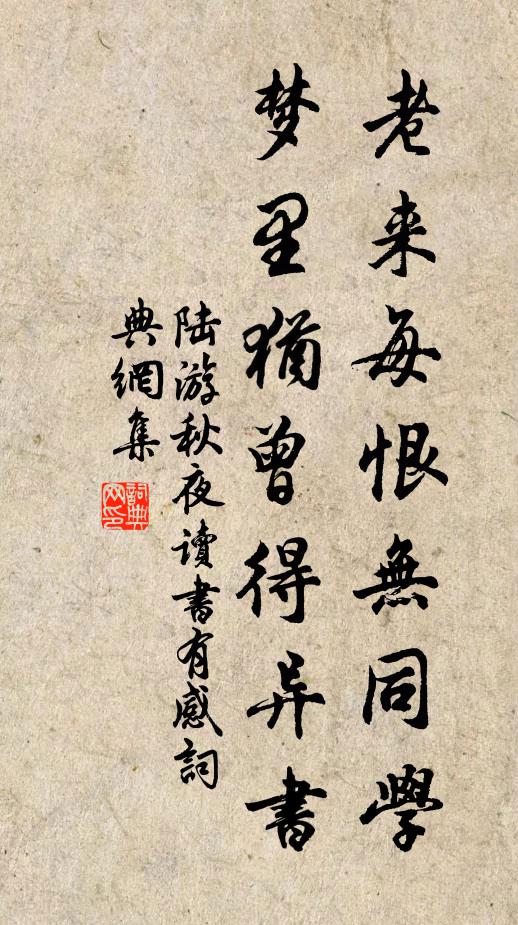 老来每恨無同學
梦里猶曾得异書
陆游秋夜讀書有感詞
典網集
詞典
网印